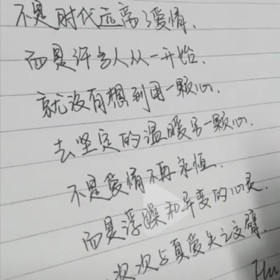 不是时代远离了爱情、
而是许多人从一开始、
就没有想到用一颗心、
去坚定的温暖另一颗心。
不是爱情不再永恒、
而是浮躁和异变的心灵、
次次与真爱失之交臂、